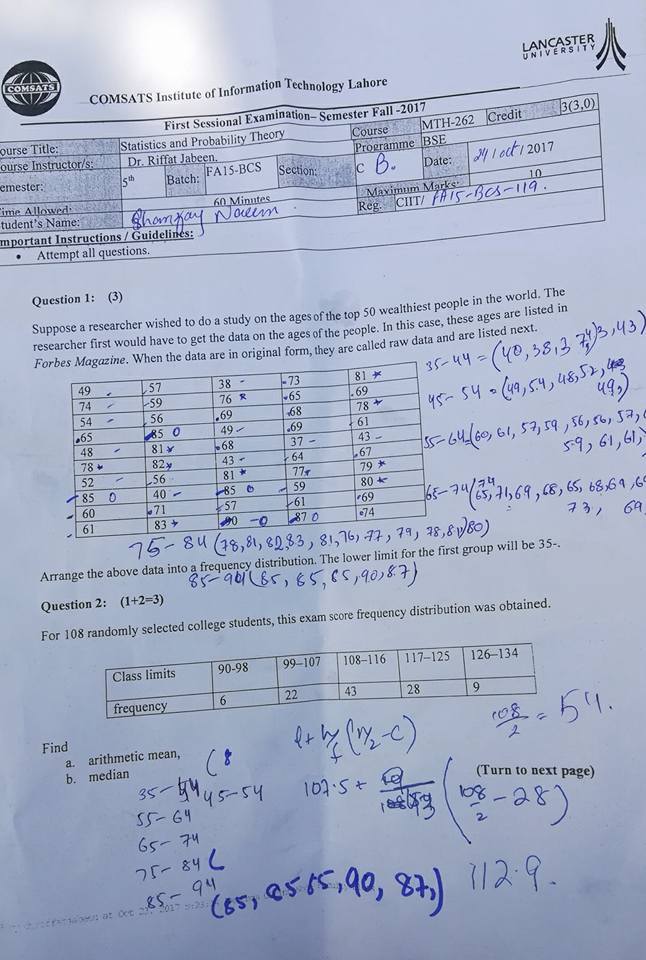 LANCASTER
UNIVERSITY
COMSATS
COMSATS Institute of Information Technology Lahore
First Sessional Examination– Semester Fall -2017
ourse Title: Statistics and Probability Theory Course MTH-262 Credit 3(3,0)
ourse Instructor/s: Dr. Riffat Jabeen. Programme BSE
emester: 5th Batch: FA15-BCS Section: C B. Date: 24/oct/2017
ime Allowed: 60 Minutes Maximum Marks: 10
tudent's Name: Naeem Reg. CIIT/ FA15-BCS-119.
mportant Instructions / Guidelines:
• Attempt all questions.
Question 1: (3)
Suppose a researcher wished to do a study on the ages of the top 50 wealthiest people in the world. The
researcher first would have to get the data on the ages of the people. In this case, these ages are listed in
Forbes Magazine. When the data are in original form, they are called raw data and are listed next.
49 57 38 73 81
74 59 76 65 69
54 56 69 68 78
65 85 49 69 61
48 81 68 37 43
78 82 43 64 67
52 56 81 77 79
85 40 85 59 80
60 71 57 61 69
61 83 90 87 74
35-44 = (40, 38, 3 43, 43)
45-54 = (49, 54, 48, 52,
49,)
55-64 = (60, 61, 57, 59, 56, 56, 57,
59, 61, 61,
65-74 (65, 71, 69, 68, 65, 68, 69, 6
74
73, 69
75-84 (78, 81, 82, 83, 81, 76, 77, 79, 78, 81, 80)
Arrange the above data into a frequency distribution. The lower limit for the first group will be 35-.
85-94 (85, 85, 85, 90, 87)
Question 2: (1+2=3)
For 108 randomly selected college students, this exam score frequency distribution was obtained.
Class limits 90-98 99–107 108–116 117–125 126–134
frequency 6 22 43 28 9
108/2 = 54.
Find
a. arithmetic mean,
b. median
l + h/f (n/2 - C)
(Turn to next page)
107.5 + (108/2 - 28)
112.9.
35-44 45-54
55-64
65-74
75-84 (
85-94
(85, 85 85, 90, 87,)